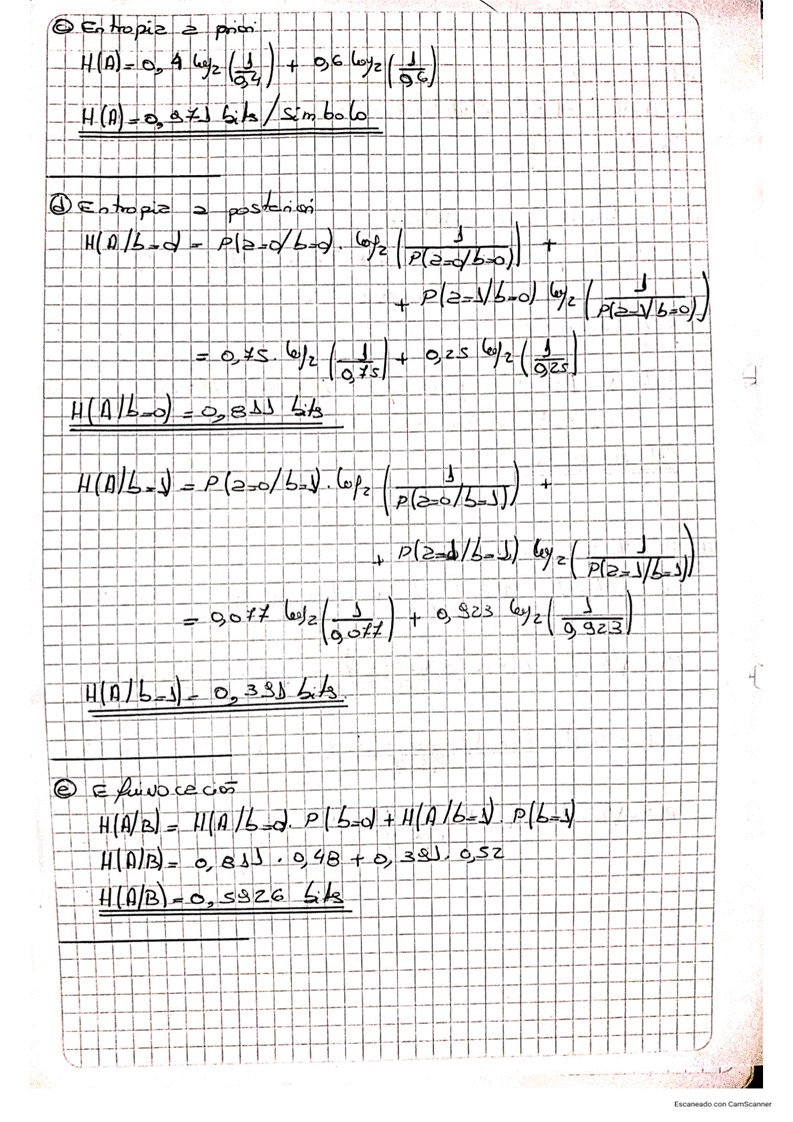 c) Entropia a priori
H(A)=0,4 log2(1/0,4) + 0,6 log2(1/0,6)
H(A)=0,971 bits/simbolo
d) Entropia a posteriori
H(A/b=0) = P(a=0/b=0) · log2(1/P(a=0/b=0)) +
+ P(a=1/b=0) log2(1/P(a=1/b=0))
= 0,75 · log2(1/0,75) + 0,25 log2(1/0,25)
H(A/b=0) = 0,811 bits
H(A/b=1) = P(a=0/b=1) · log2(1/P(a=0/b=1)) +
+ P(a=1/b=1) log2(1/P(a=1/b=1))
= 0,077 log2(1/0,077) + 0,923 log2(1/0,923)
H(A/b=1) = 0,391 bits
e) Equivocación
H(A/B) = H(A/b=0) · P(b=0) + H(A/b=1) · P(b=1)
H(A/B) = 0,811 · 0,48 + 0,391 · 0,52
H(A/B) = 0,5926 bits
Escaneado con CamScanner